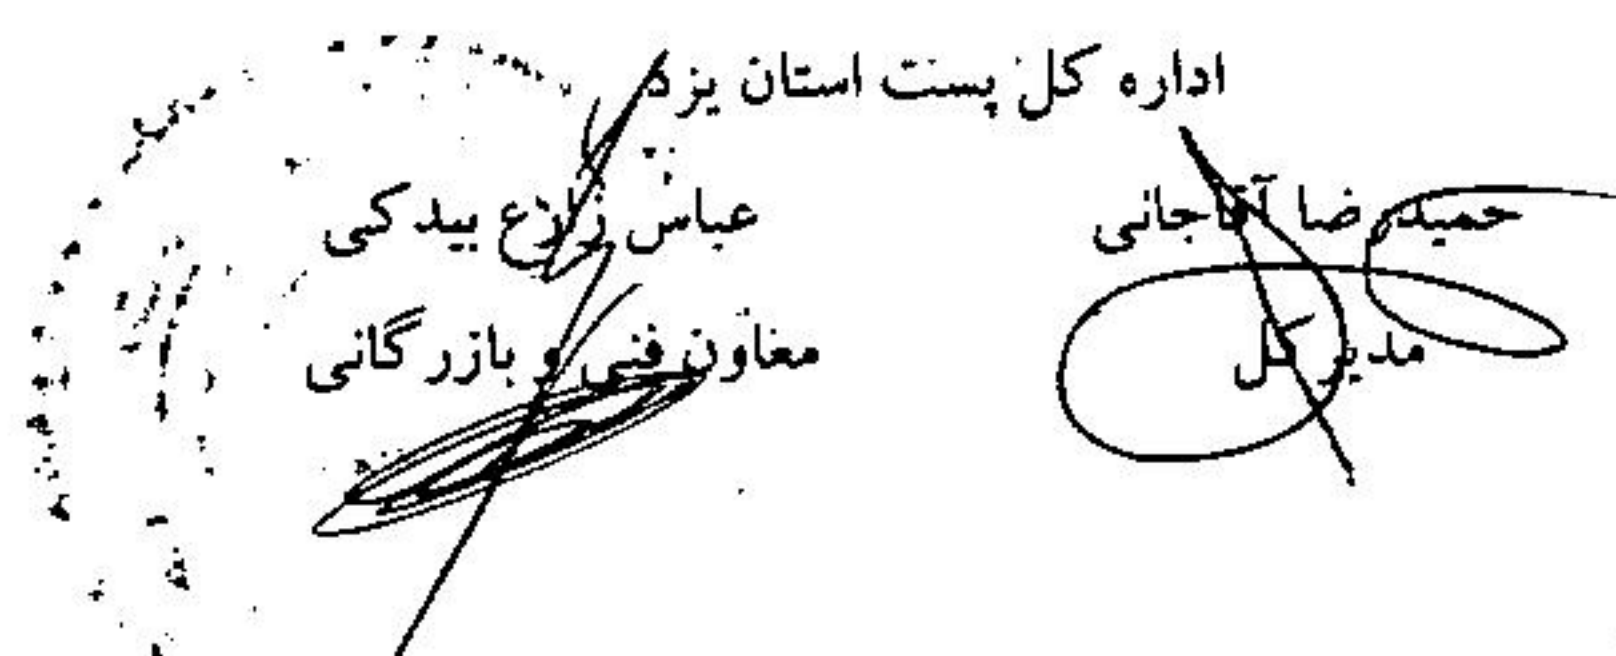 اداره کل پست استان یزد
حمیدرضا آقاجانی عباس زارع بیدکی
مدیر کل معاون فنی و بازرگانی